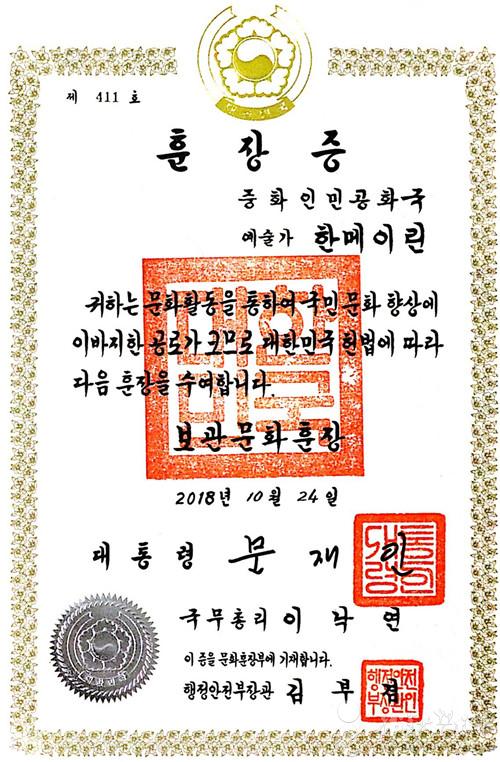 제 411 호
훈장증
중화인민공화국
예술가 한메이린
귀하는 문화활동을 통하여 국민문화 향상에
이바지한 공로가 크므로 대한민국 헌법에 따라
다음 훈장을 수여합니다.
대한
민국
보관문화훈장
2018년 10월 24일
대통령 문재인
국무총리 이낙연
이 증을 문화훈장부에 기재합니다.
행정안전부장관 김부겸
행정안전
부장관인